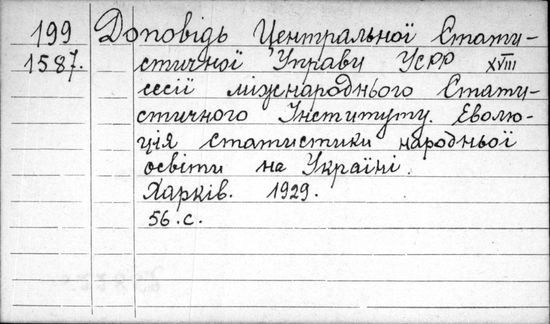 199 Доповідь Центральної Стати-
1587. стичної Управи УСРР XVIII
сесії міжнароднього Стати-
стичного Інституту. Еволю-
ція статистики народньої
освіти на Україні.
Харків. 1929.
56.с.